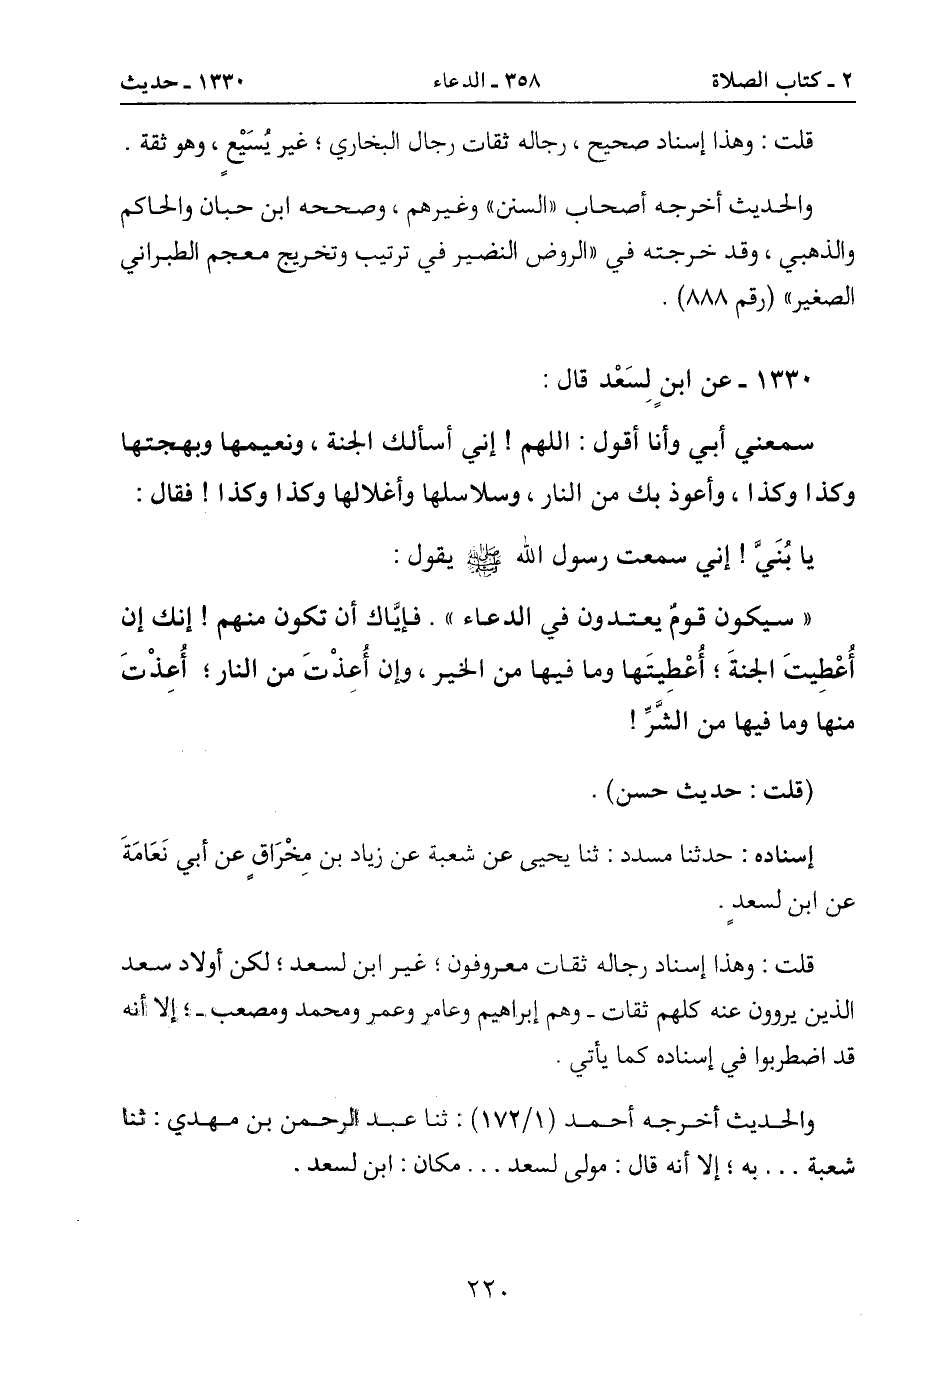 ٢ ـ كتاب الصلاة ٣٥٨ ـ الدعاء ١٣٣٠ ـ حديث
قلت : وهذا إسناد صحيح ، رجاله ثقات رجال البخاري ؛ غير يُسَيْعٍ ، وهو ثقة .
والحديث أخرجه أصحاب «السنن» وغيرهم ، وصححه ابن حبان والحاكم
والذهبي ، وقد خرجته في «الروض النضير في ترتيب وتخريج معجم الطبراني
الصغير» (رقم ٨٨٨) .
١٣٣٠ ـ عن ابنٍ لِسَعْد قال :
سمعني أبي وأنا أقول : اللهم ! إني أسألك الجنة ، ونعيمها وبهجتها
وكذا وكذا ، وأعوذ بك من النار ، وسلاسلها وأغلالها وكذا وكذا ! فقال :
يا بُنَيَّ ! إني سمعت رسول الله ﷺ يقول :
« سيكون قومٌ يعتدون في الدعاء » . فإيَّاك أن تكون منهم ! إنك إن
أُعْطِيتَ الجنةَ ؛ أُعْطِيتَها وما فيها من الخير ، وإن أُعِذْتَ من النار ؛ أُعِذْتَ
منها وما فيها من الشَّرِّ !
(قلت : حديث حسن) .
إسناده : حدثنا مسدد : ثنا يحيى عن شعبة عن زياد بن مِخْرَاقٍ عن أبي نَعَامَةَ
عن ابن لسعدٍ .
قلت : وهذا إسناد رجاله ثقات معروفون ؛ غير ابن لسعد ؛ لكن أولاد سعد
الذين يروون عنه كلهم ثقات ـ وهم إبراهيم وعامر وعمر ومحمد ومصعب ـ ؛ إلا أنه
قد اضطربوا في إسناده كما يأتي .
والحديث أخرجه أحمد (١/١٧٢) : ثنا عبد الرحمن بن مهدي : ثنا
شعبة . . . به ؛ إلا أنه قال : مولى لسعد . . . مكان : ابن لسعد .
٢٢٠